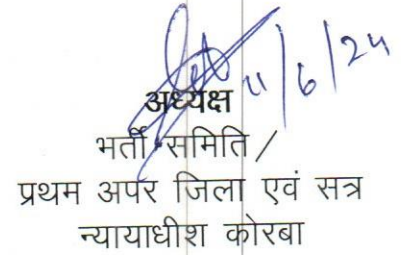 11/6/24
अध्यक्ष
भर्ती समिति /
प्रथम अपर जिला एवं सत्र
न्यायाधीश कोरबा